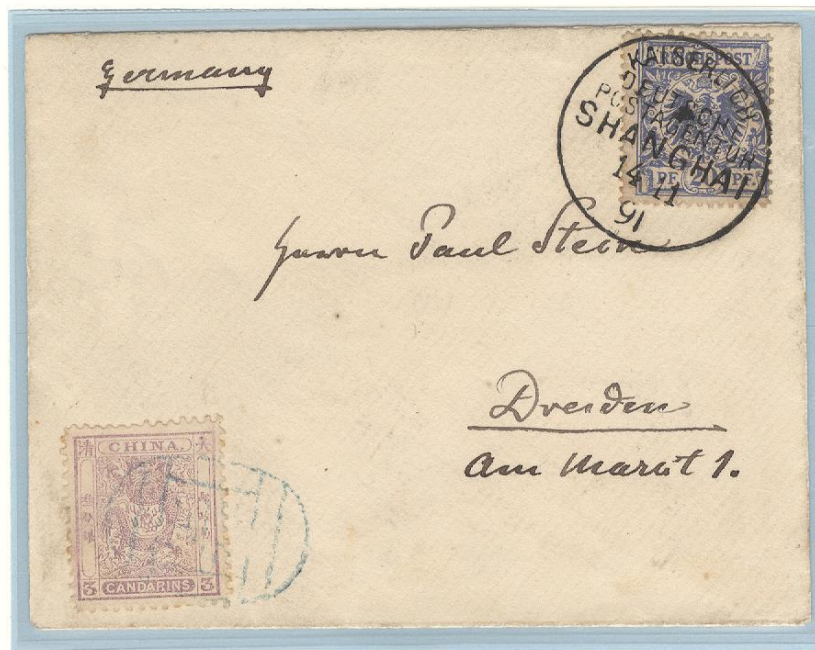 Germany
REICHSPOST
KAISERLICH
DEUTSCHE
POSTAGENTUR
SHANGHAI
14 11
91
PF 20 PF
Herrn Paul Stein
Dresden
Am Markt 1.
清 CHINA. 大
3 CANDARINS 3